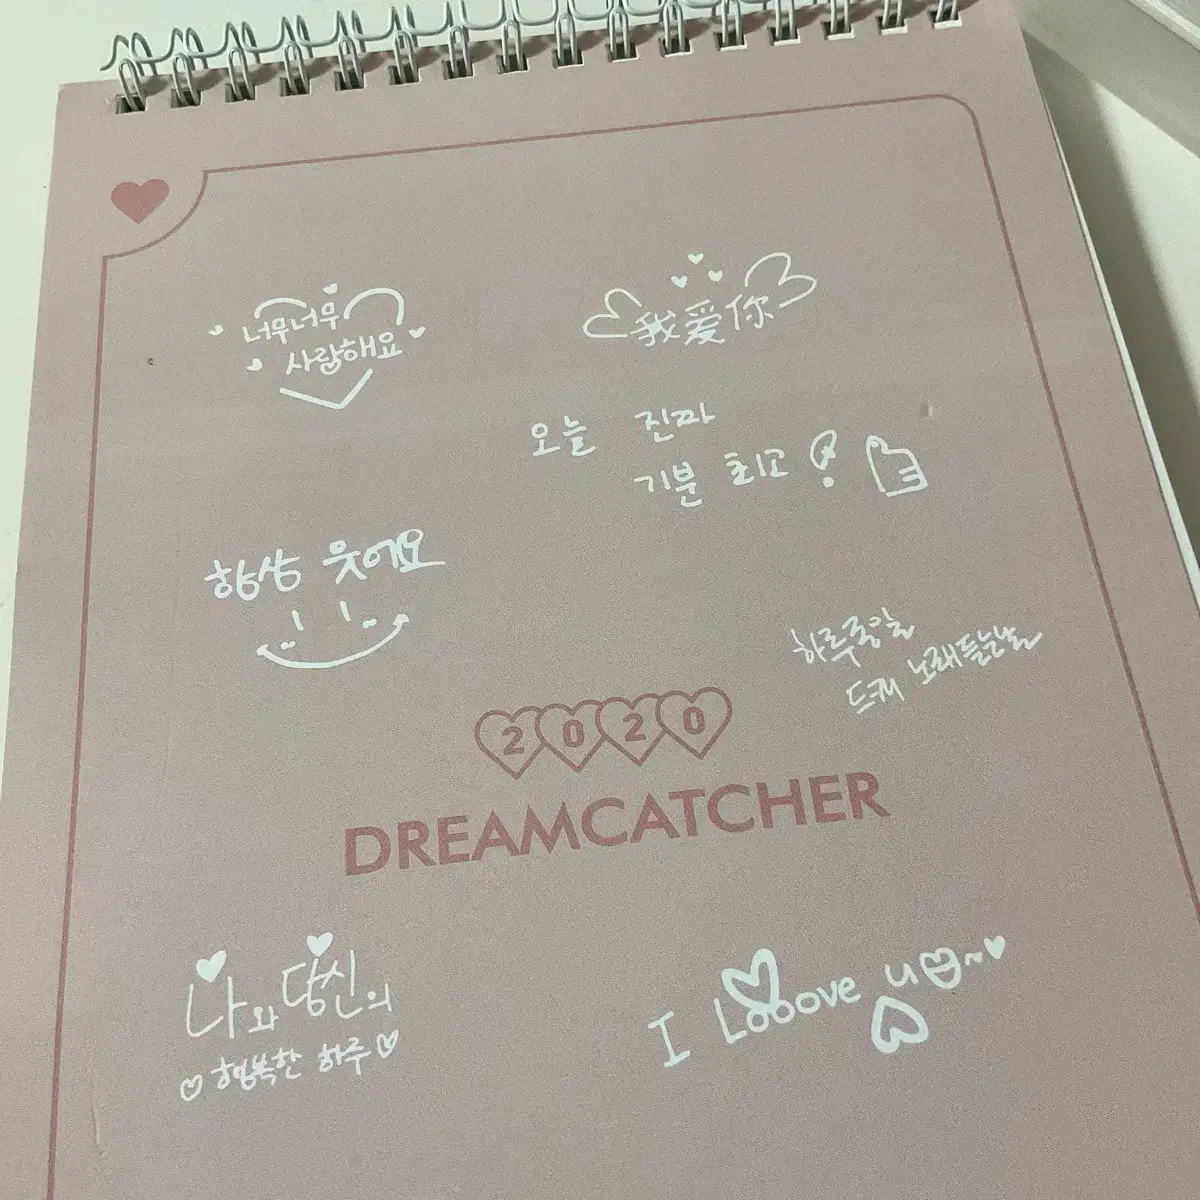 너무너무
사랑해요
我爱你
오늘 진짜
기분 최고!
항상 웃어요
하루종일
드캐 노래듣는날
2020
DREAMCATCHER
나와 당신의
행복한 하루
I Looove u~